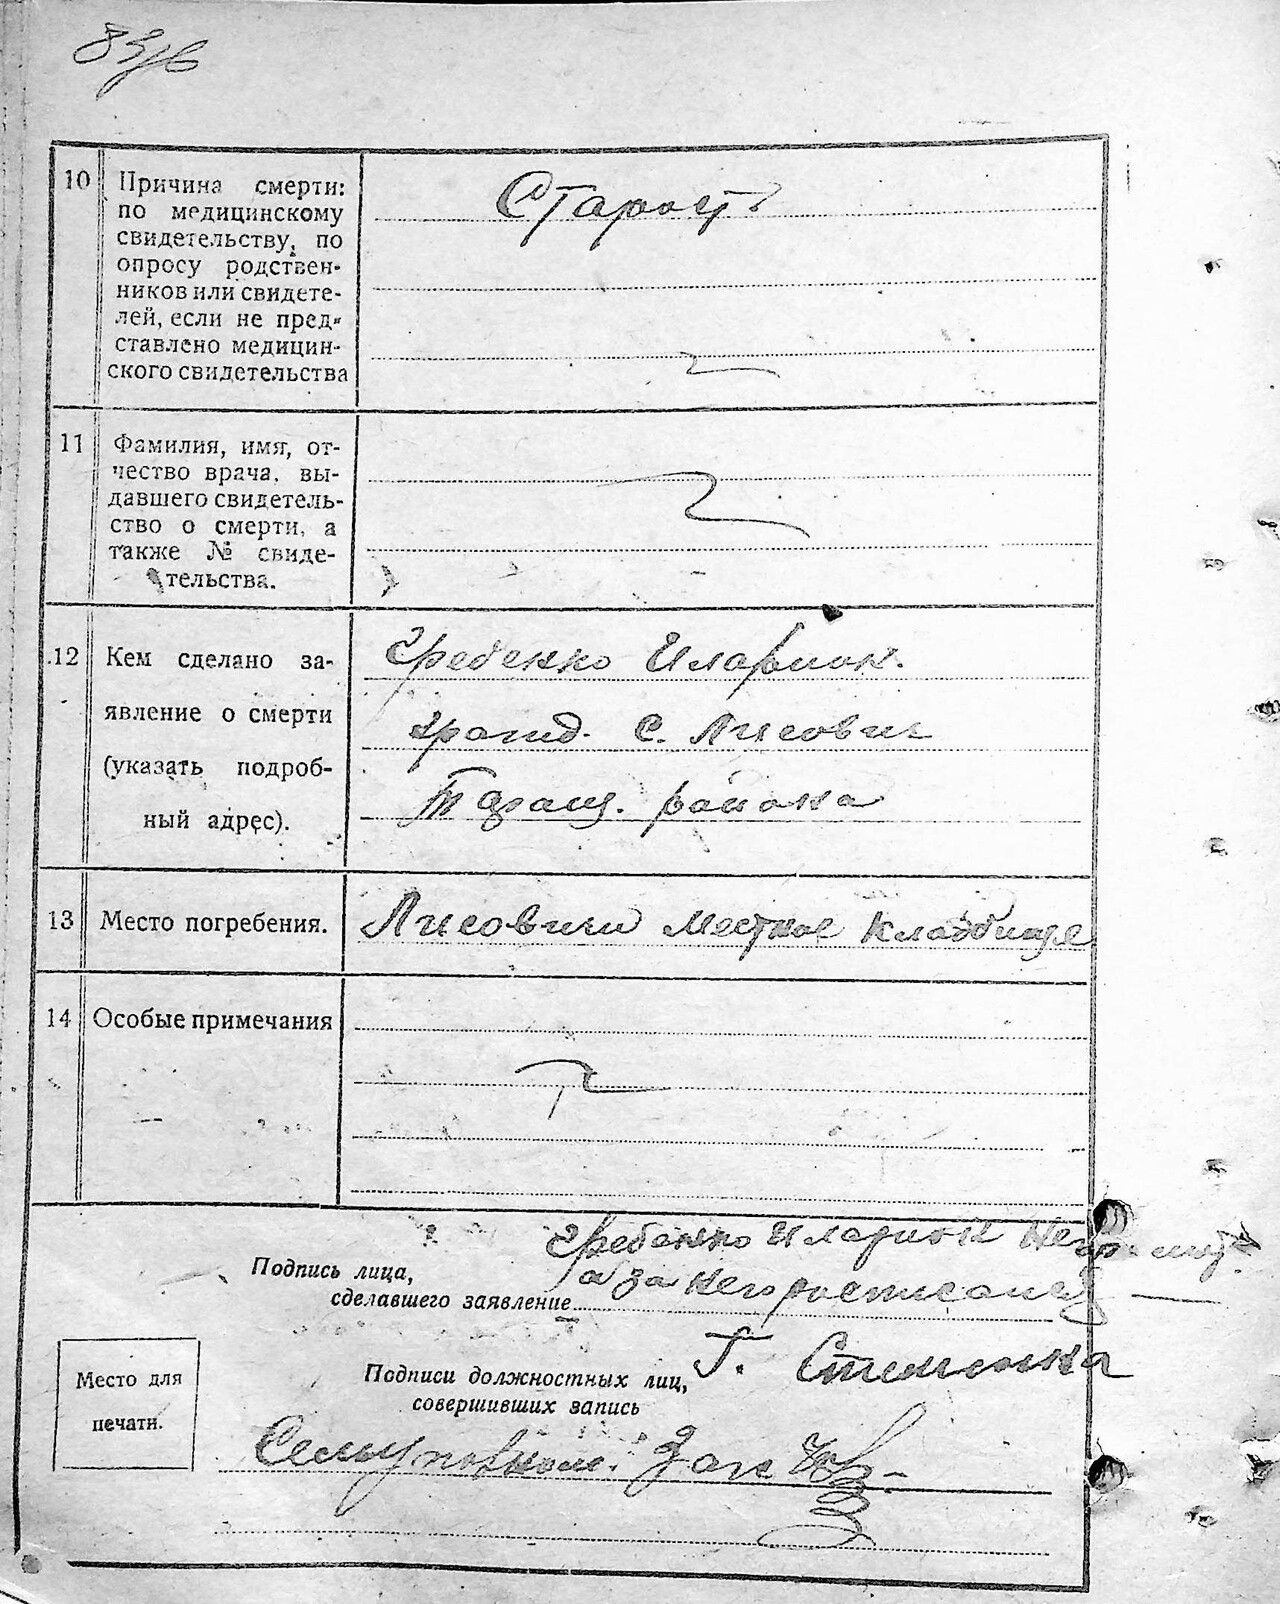 10 Причина смерти:
по медицинскому
свидетельству, по
опросу родствен-
ников или свидете-
лей, если не пред-
ставлено медицин-
ского свидетельства
Старость
11 Фамилия, имя, от-
чество врача, вы-
давшего свидетель-
ство о смерти, а
также № свиде-
тельства.
12 Кем сделано за-
явление о смерти
(указать подроб-
ный адрес).
Гребенко Иларион
гражд. с. Лисович
Таращ. района
13 Место погребения.
Лисовичи местное кладбище
14 Особые примечания
Гребенко Иларион
Подпись лица,
сделавшего заявление
а за него
Подписи должностных лиц,
совершивших запись
Г.
Место для
печати.